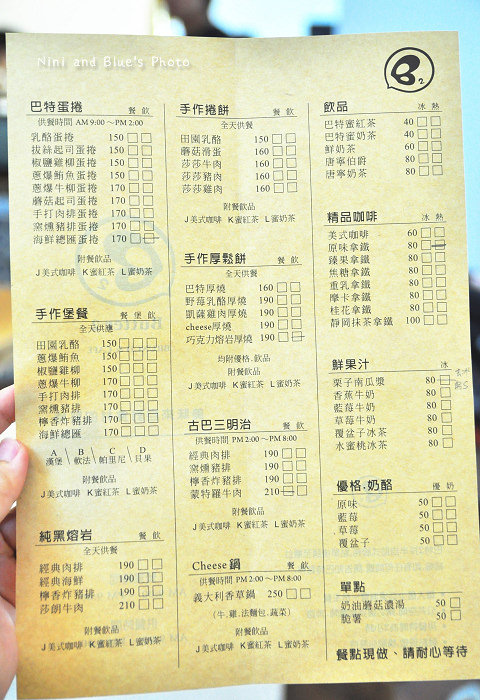 Nini and Blue's Photo
B2
巴特蛋捲 餐 飲
供餐時間 AM 9:00～PM 2:00
乳酪蛋捲 150
拔絲起司蛋捲 150
椒鹽雞柳蛋捲 150
蔥爆鮪魚蛋捲 150
蔥爆牛柳蛋捲 170
蘑菇起司蛋捲 170
手打肉排蛋捲 170
窯燻豬排蛋捲 170
海鮮總匯蛋捲 170
附餐飲品
J 美式咖啡 K 蜜紅茶 L 蜜奶茶
手作堡餐 餐 堡 飲
全天供應
田園乳酪 150
藍爆鮪魚 150
椒鹽雞柳 150
藍爆牛柳 170
手打肉排 170
窯燻豬排 170
檸香炸豬排 170
海鮮總匯 170
A B C D
漢堡 軟法 帕里尼 貝果
附餐飲品
J 美式咖啡 K 蜜紅茶 L 蜜奶茶
純黑熔岩 餐 飲
全天供餐
經典肉排 190
經典海鮮 190
檸香炸豬排 190
莎朗牛肉 210
附餐飲品
J 美式咖啡 K 蜜紅茶 L 蜜奶茶
手作捲餅 餐 飲
全天供餐
田園乳酪 150
蘑菇滑蛋 160
莎莎牛肉 160
莎莎豬肉 160
莎莎雞肉 160
附餐飲品
J 美式咖啡 K 蜜紅茶 L 蜜奶茶
手作厚鬆餅 餐 飲
全天供餐
巴特厚燒 160
野莓乳酪厚燒 190
凱薩雞肉厚燒 190
cheese厚燒 190
巧克力熔岩厚燒 190
均附優格.飲品
附餐飲品
J 美式咖啡 K 蜜紅茶 L 蜜奶茶
古巴三明治 餐 飲
供餐時間 PM 2:00～PM 8:00
經典肉排 190
窯燻豬排 190
檸香炸豬排 190
蒙特羅牛肉 210
附餐飲品
J 美式咖啡 K 蜜紅茶 L 蜜奶茶
Cheese 鍋 餐 飲
供餐時間 PM 2:00～PM 8:00
義大利香草鍋 250
(牛.雞.法麵包.蔬菜)
附餐飲品
J 美式咖啡 K 蜜紅茶 L 蜜奶茶
飲品 冰 熱
巴特蜜紅茶 40
巴特蜜奶茶 40
鮮奶茶 60
唐寧伯爵 80
唐寧奶茶 80
精品咖啡 冰 熱
美式咖啡 60
原味拿鐵 80
臻果拿鐵 80
焦糖拿鐵 80
重乳拿鐵 80
摩卡拿鐵 80
桂花拿鐵 80
靜岡抹茶拿鐵 100
鮮果汁 冰
栗子南瓜漿 80
香蕉牛奶 80
藍莓牛奶 80
草莓牛奶 80
覆盆子冰茶 80
水蜜桃冰茶 80
優格.奶酪 優 奶
原味 50
藍莓 50
草莓 50
覆盆子 50
單點
奶油蘑菇濃湯 50
脆薯 50
餐點現做、請耐心等待